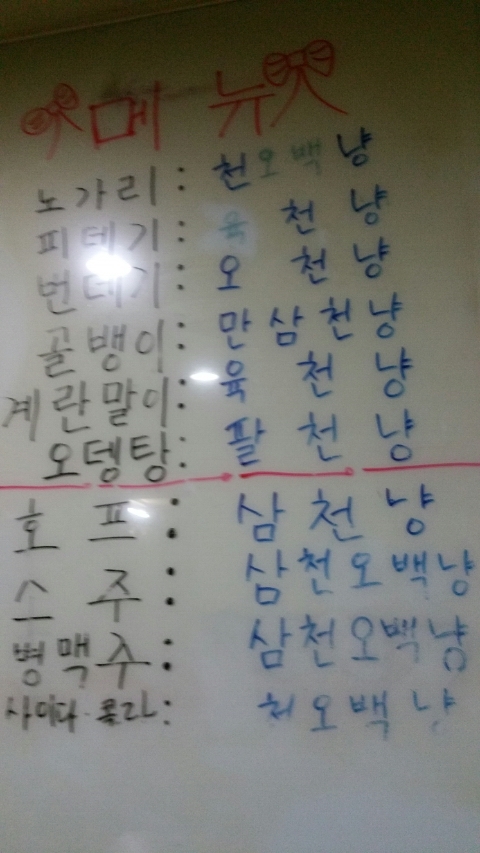 메뉴
노가리: 천오백냥
피데기: 육천냥
번데기: 오천냥
골뱅이: 만삼천냥
계란말이: 육천냥
오뎅탕: 팔천냥
호프: 삼천냥
스주: 삼천오백냥
병맥주: 삼천오백냥
사이다·콜라: 천오백냥